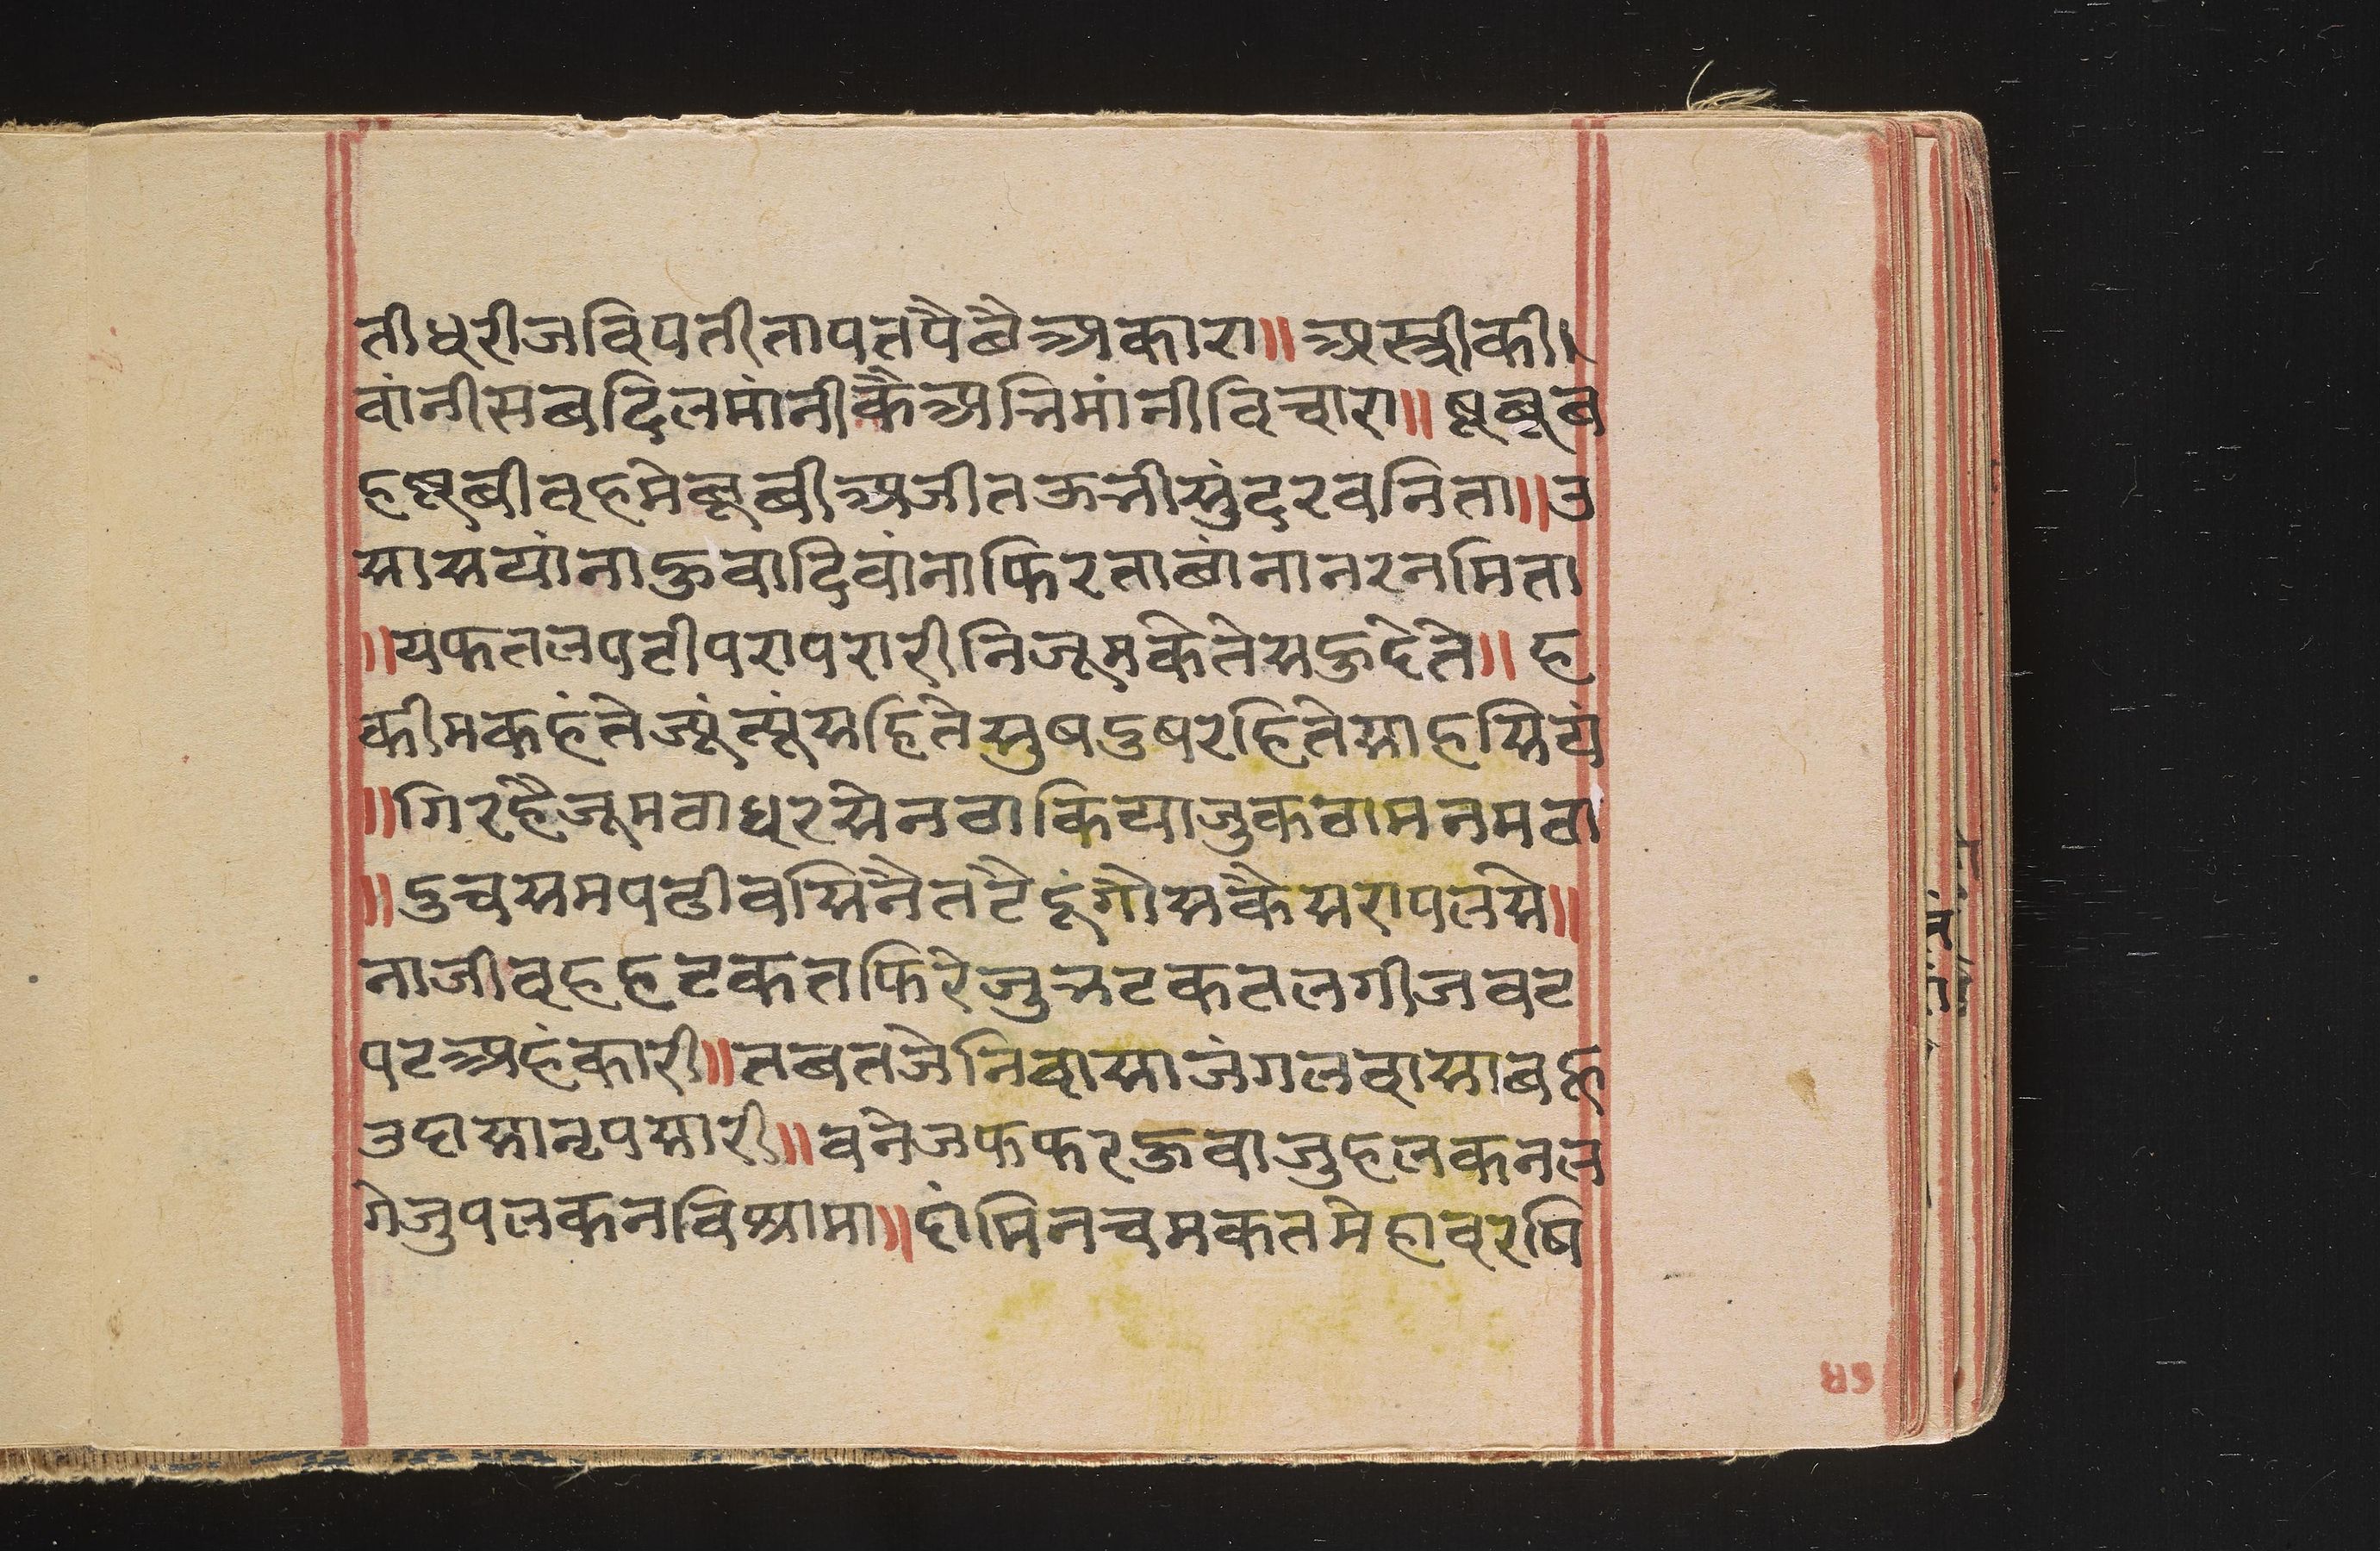 तीध्रीजविपतीतापतपैबैअकारा॥अस्त्रीकी।
वांनीसबदिलमांनीकैअभिमांनीविचारा॥षूबूब
हषूबीब्रहमेषूबीअजीतऊभीसुंदरवनिता॥उ
सासयांनाक्रुवादिवांनाफिरताबांनानरनमिता
॥यफतलपटीपरापरारीनिजूमकेतेसक्रुदेते॥ह
कीमकहंतेज्यूंत्यूंसहितेसुषदुषरहितेसाहसियं
॥गिरहैजूमवाध्रसेनवाकियाजुकवामनमवा
॥दुचसमपठीवसिनैतटैढूंगौसकैसरापलसे॥
नाजीव्रहहटकतफिरेजुभटकतलगीजवट
पटअहंकारी॥तबतजेनिवासाजंगलवासाबह्
उदासानृपसारी॥वनेजफफरक्रुवाजुहलकनल
गेजुपलकनविश्रामा॥दांमिनचमकतमेहाव्रषि